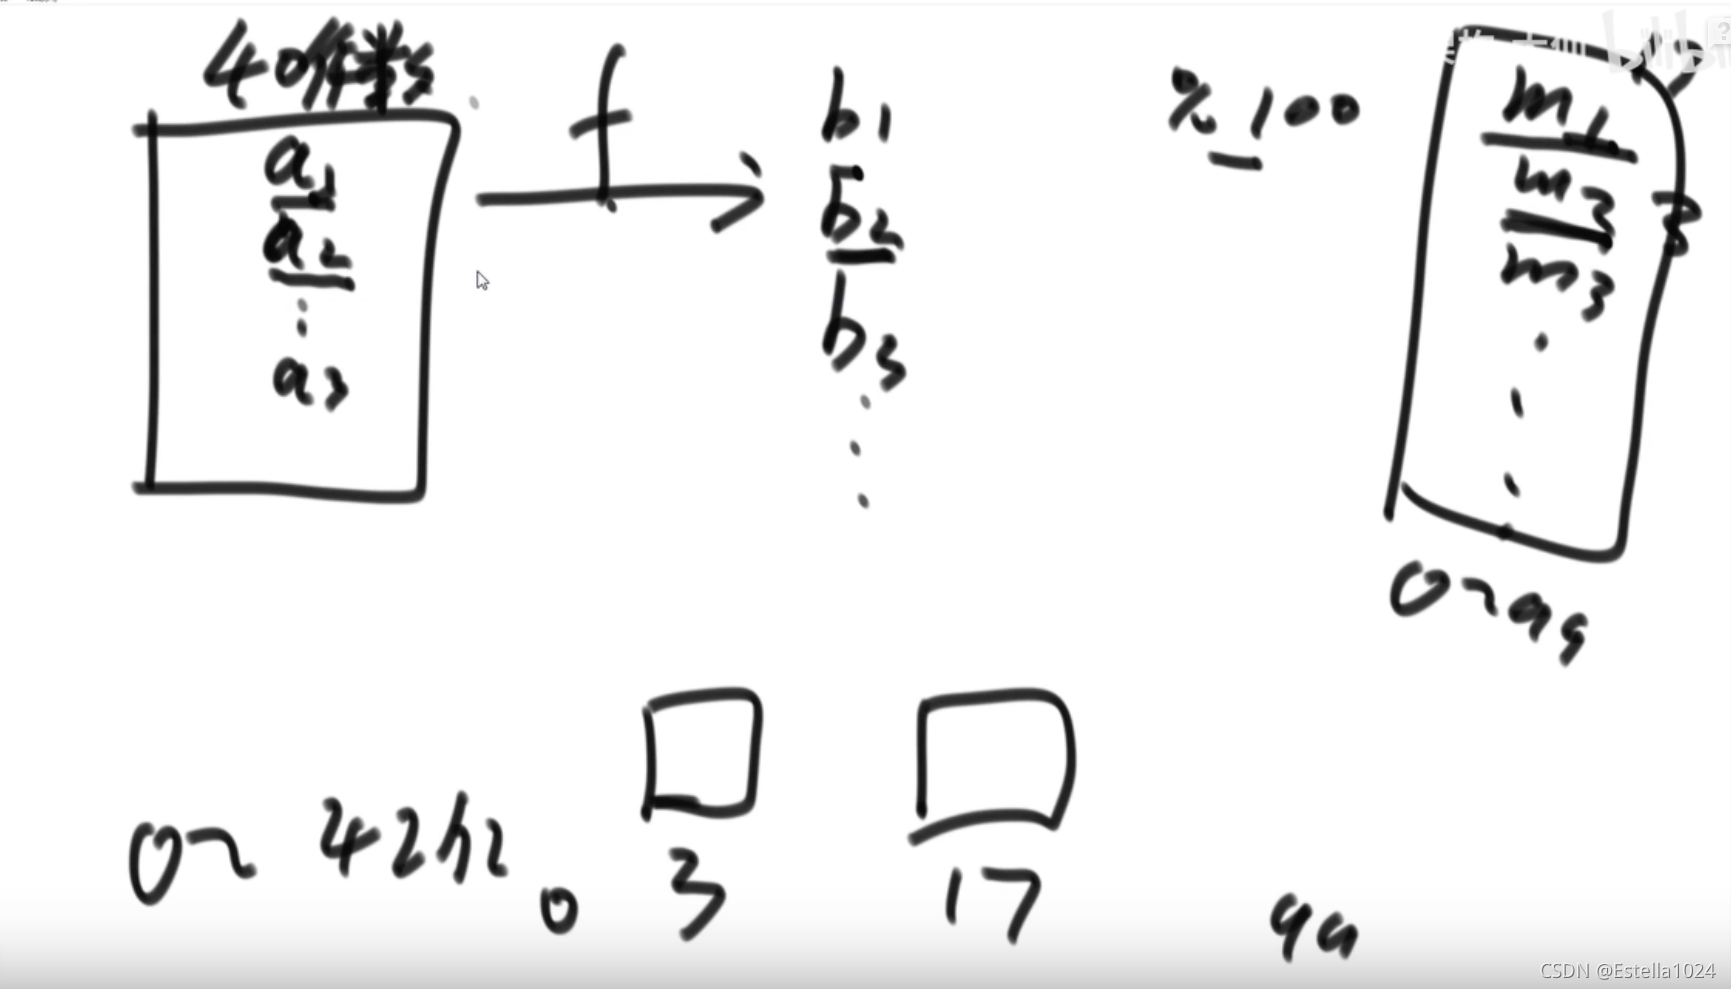 40亿
f
a1
a2
a3
b1
b2
b3
%100
m1
m3
m3
0~99
0~42亿
0
3
17
99
bilibili
CSDN @Estella1024